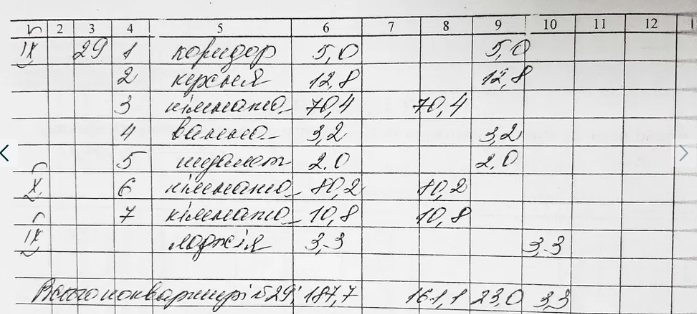 2 3 4 5 6 7 8 9 10 11 12
IX 29 1 коридор 5,0 5,0
2 кухня 12,8 12,8
3 кімната 70,4 70,4
4 ванна 3,2 3,2
5 туалет 2.0 2.0
X 6 кімната 80,2 80,2
7 кімната 10,8 10,8
IX лоджія 3,3 3,3
Всього по квартирі №29: 187,7 161,4 23,0 3,3